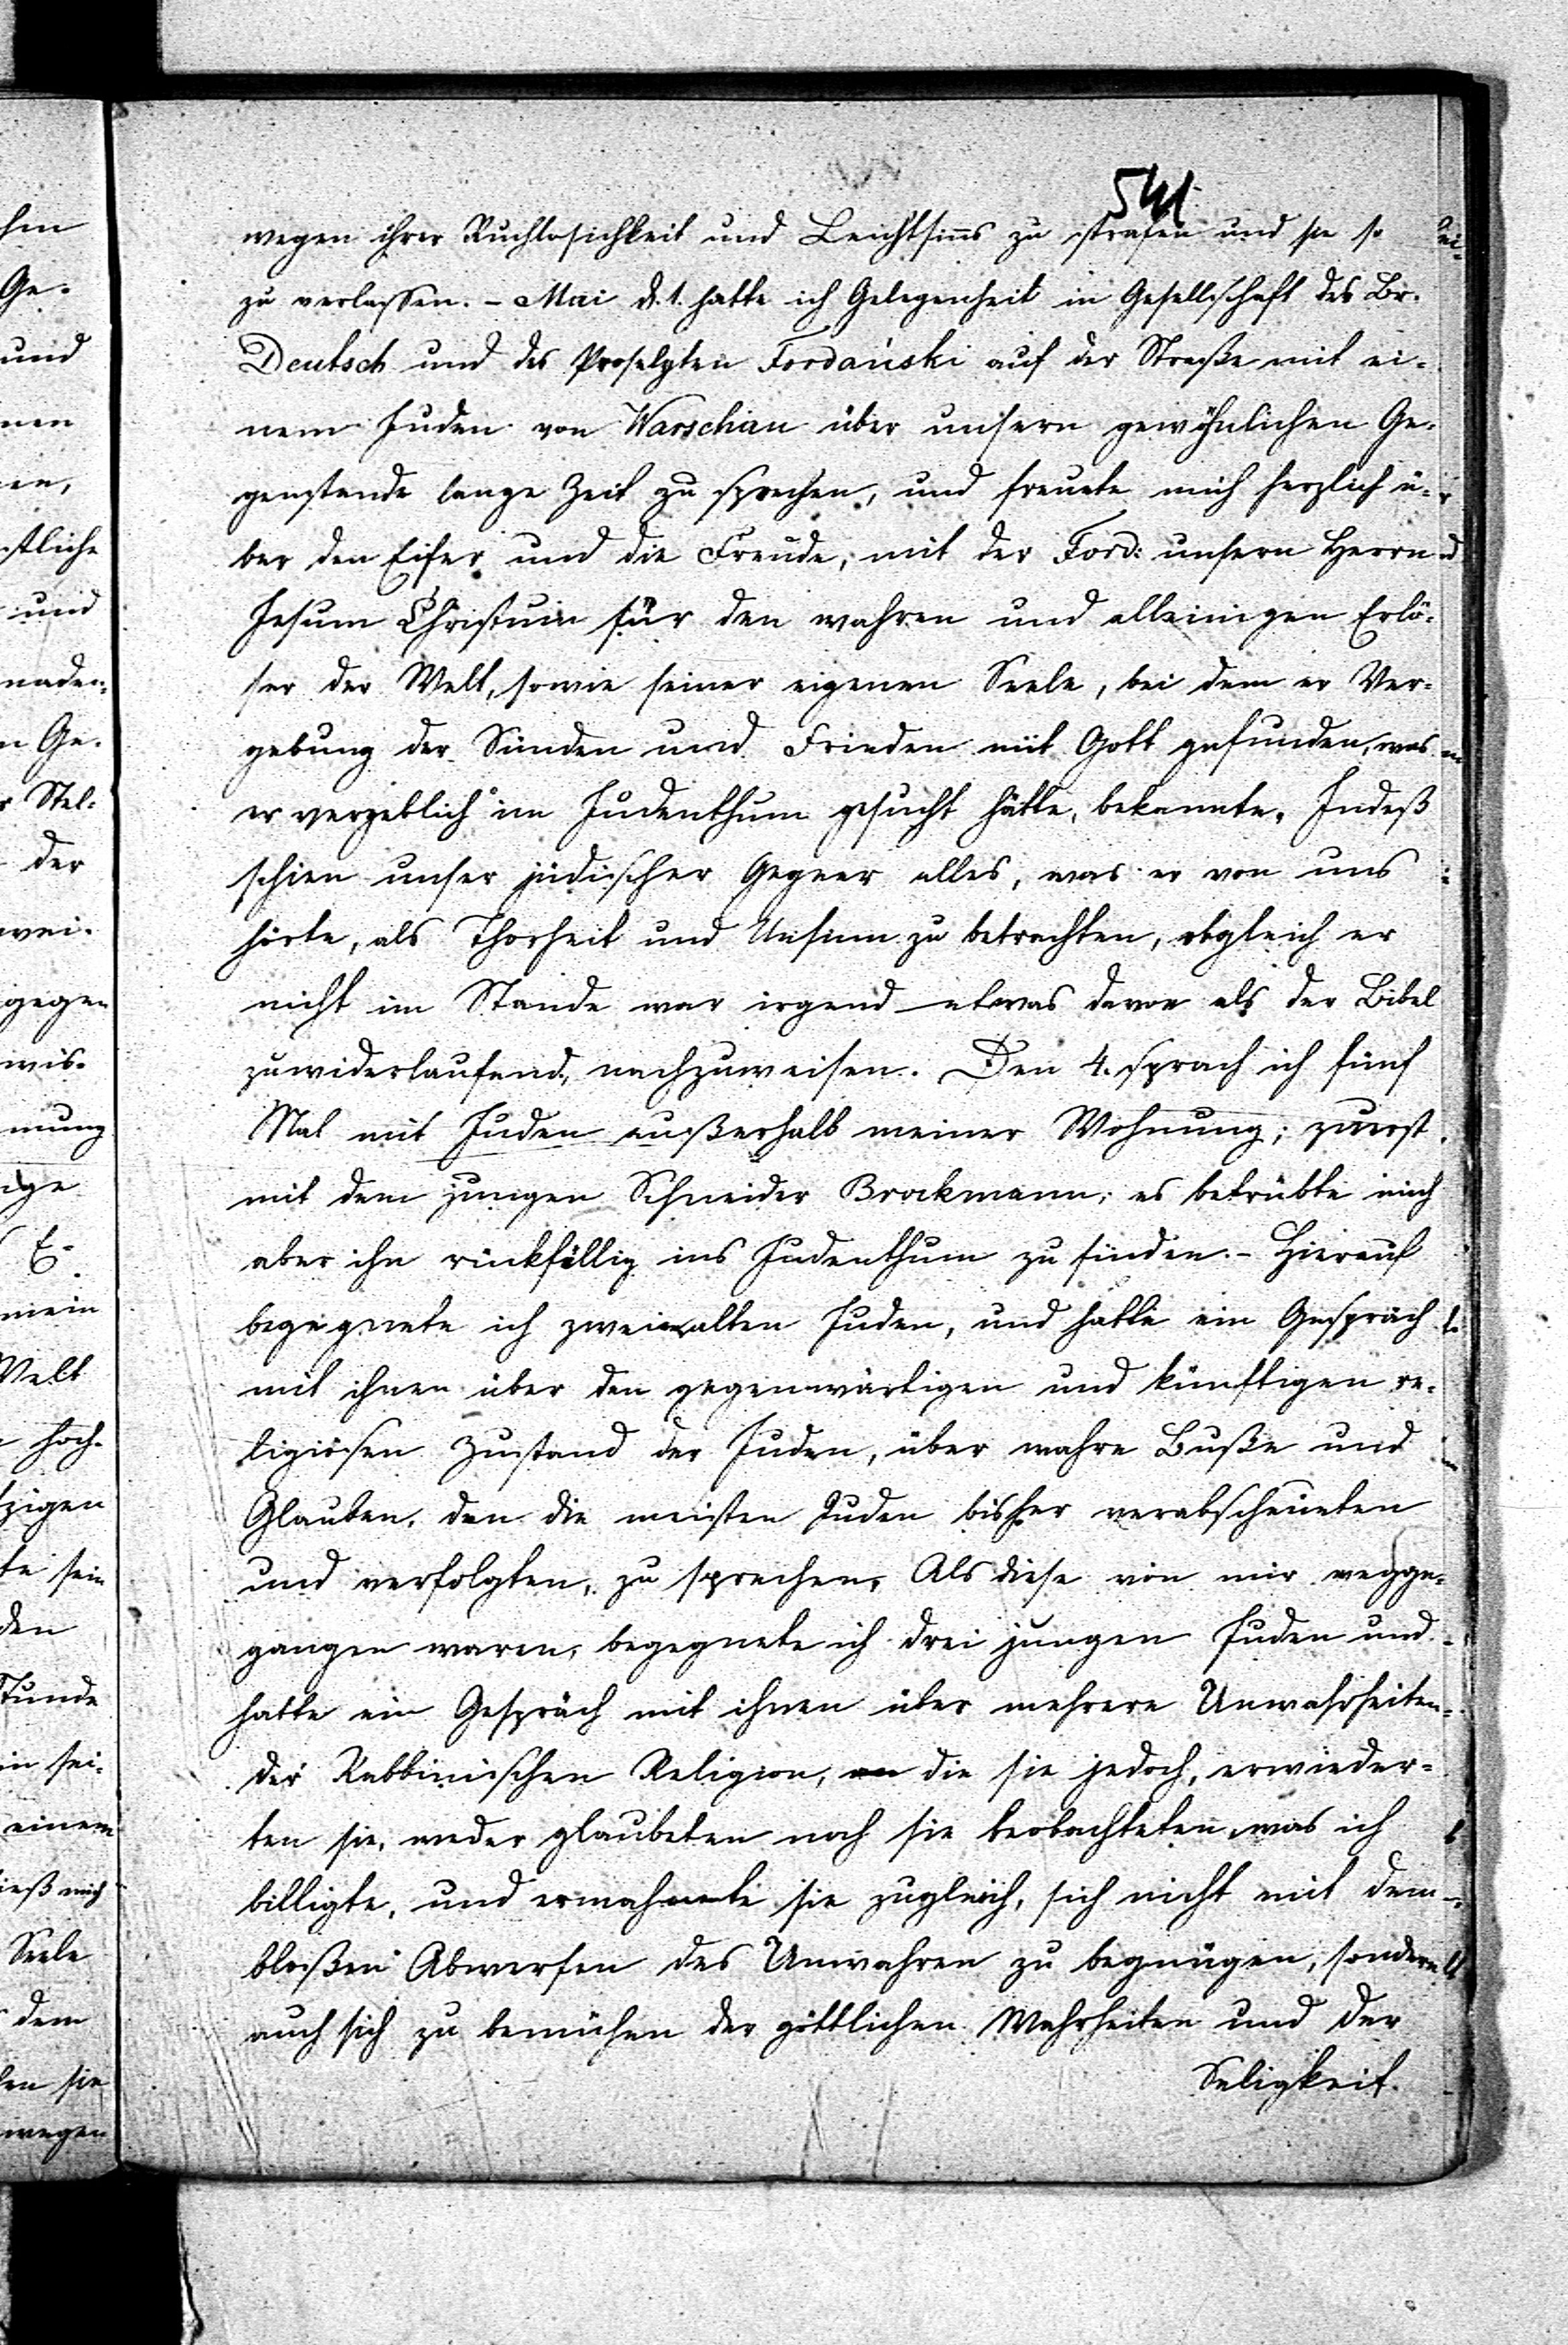 541
wegen ihrer Ruchlosichkeit und Leichtsinns zu strafen und sie so
zu verlassen. – Mai d. 1. hatte ich Gelegenheit in Gesellschaft des Br.
Deutsch und des Proselyten Fordański auf der Straße mit ei-
nem Juden von Warschau über unsern gewöhnlichen Ge-
genstande lange Zeit zu sprechen, und freuete mich herzlich ü-
ber den Eifer und die Freude, mit der Ford: unsern Herrn
Jesum Christum für den wahren und alleinigen Erlö-
ser der Welt, sowie seiner eigenen Seele, bei dem er Ver-
gebung der Sünden und Frieden mit Gott gefunden, was
er vergeblich im Judenthum gesucht hätte, bekannte. Indeß
schien unser jüdischer Gegner alles, was er von uns
hörte, als Thorheit und Unsinn zu betrachten, obgleich er
nicht im Stande war irgend etwas davon als der Bibel
zuwiderlaufend, nachzuweisen. Den 4. sprach ich fünf
Mal mit Juden außerhalb meiner Wohnung; zuerst
mit dem jungen Schneider Brockmann; es betrübte mich
aber ihn rückfällig ins Judenthum zu finden. – Hierauf
begegnete ich zwei alten Juden, und hatte ein Gespräch
mit ihnen über den gegenwärtigen und künftigen re-
ligiösen Zustand der Juden, über wahre Buße und
Glauben, den die meisten Juden bisher verabscheueten
und verfolgten, zu sprechen. Als diese von mir wegge-
gangen waren, begegnete ich drei jungen Juden und
hatte ein Gespräch mit ihnen über mehrere Unwahrheiten
der Rabbinischen Religion, die sie jedoch, erwieder-
ten sie, weder glaubeten noch sie beobachteten, was ich
billigte, und ermahnte sie zugleich, sich nicht mit dem
bloßen Abwerfen des Unwahren zu begnügen, sondern
auch sich zu bemühen der göttlichen Wahrheiten und der
Seligkeit.